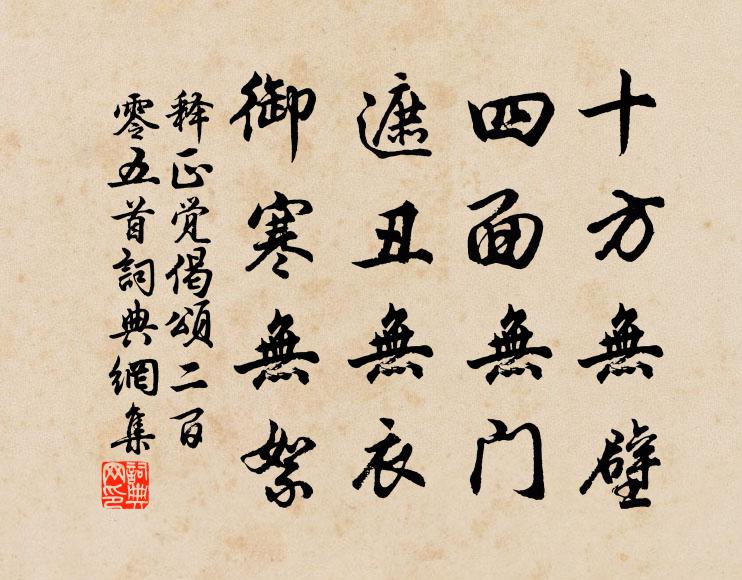 十方無壁
四面無门
遮丑無衣
御寒無絮
释正觉偈頌二百
零五首詞典網集
詞典
网印